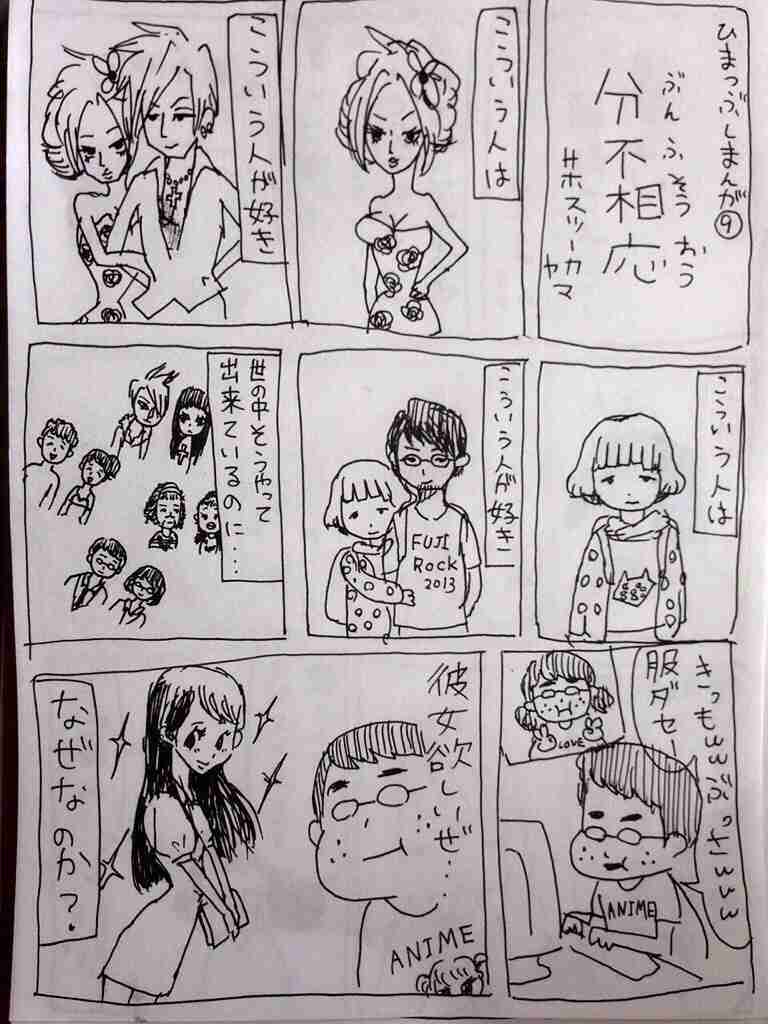 ひまつぶしまんが⑨
ぶんふそうおう
分不相応
サホスツーカヤマ
こういう人は
こういう人が好き
こういう人は
こういう人が好き
FUJI
Rock
2013
世の中そうやって
出来ているのに…
きっもwwぶっさwww
服ダセー
LOVE
ANIME
彼女欲しいぜ……
ANIME
なぜなのか?